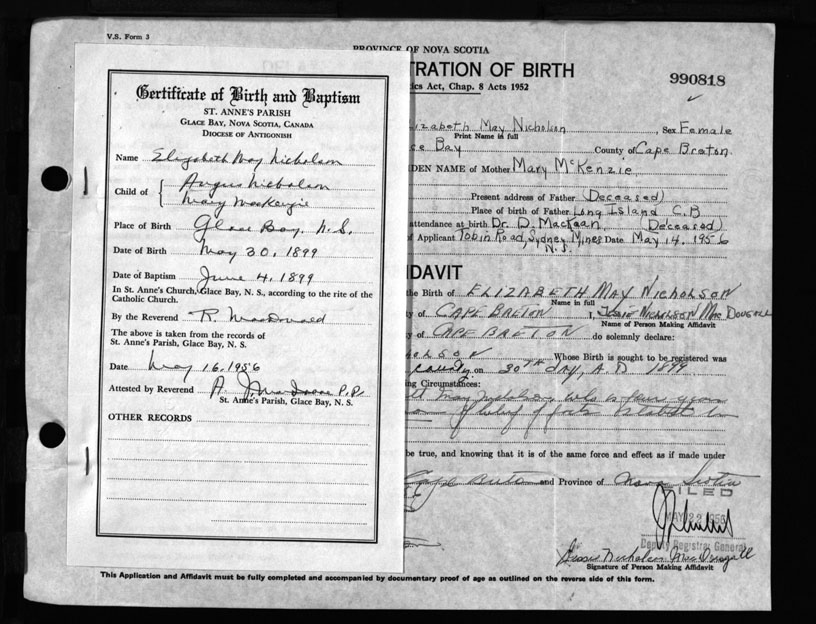 V.S. Form 3
Certificate of Birth and Baptism
ST. ANNE'S PARISH
GLACE BAY, NOVA SCOTIA, CANADA
DIOCESE OF ANTIGONISH
Name Elizabeth May Nicholson
Child of { Angus Nicholson
Mary MacKenzie
Place of Birth Glace Bay, N.S.
Date of Birth May 30, 1899
Date of Baptism June 4, 1899
In St. Anne's Church, Glace Bay, N. S., according to the rite of the
Catholic Church.
By the Reverend R. MacDonald
The above is taken from the records of
St. Anne's Parish, Glace Bay, N. S.
Date May 16, 1956
Attested by Reverend A. J. P.P.
St. Anne's Parish, Glace Bay, N. S.
OTHER RECORDS
PROVINCE OF NOVA SCOTIA
TRATION OF BIRTH
990818
ics Act, Chap. 8 Acts 1952
lizabeth May Nicholson, Sex Female
Print Name in full
ce Bay County of Cape Breton
DEN NAME of Mother Mary McKenzie
Present address of Father (Deceased)
Place of birth of Father Long Island C.B
attendance at birth Dr. D. (Deceased)
f Applicant Tobin Road, Sydney Mines Date May 14, 1956
N.S.
FIDAVIT
the Birth of ELIZABETH MAY NICHOLSON
Name in full
y of CAPE BRETON I, JESSIE NICHOLSON MAC DOUGALL
Name of Person Making Affidavit
y of CAPE BRETON do solemnly declare:
HOLSON Whose Birth is sought to be registered was
county on 30TH day, A.D. 1899
ing Circumstances:
May Nicholson, who is years
of
be true, and knowing that it is of the same force and effect as if made under
Cape Breton and Province of Nova Scotia
ILED
MAY 22 1956
Deputy Registrar General
Jessie Nicholson MacDougall
Signature of Person Making Affidavit
This Application and Affidavit must be fully completed and accompanied by documentary proof of age as outlined on the reverse side of this form.